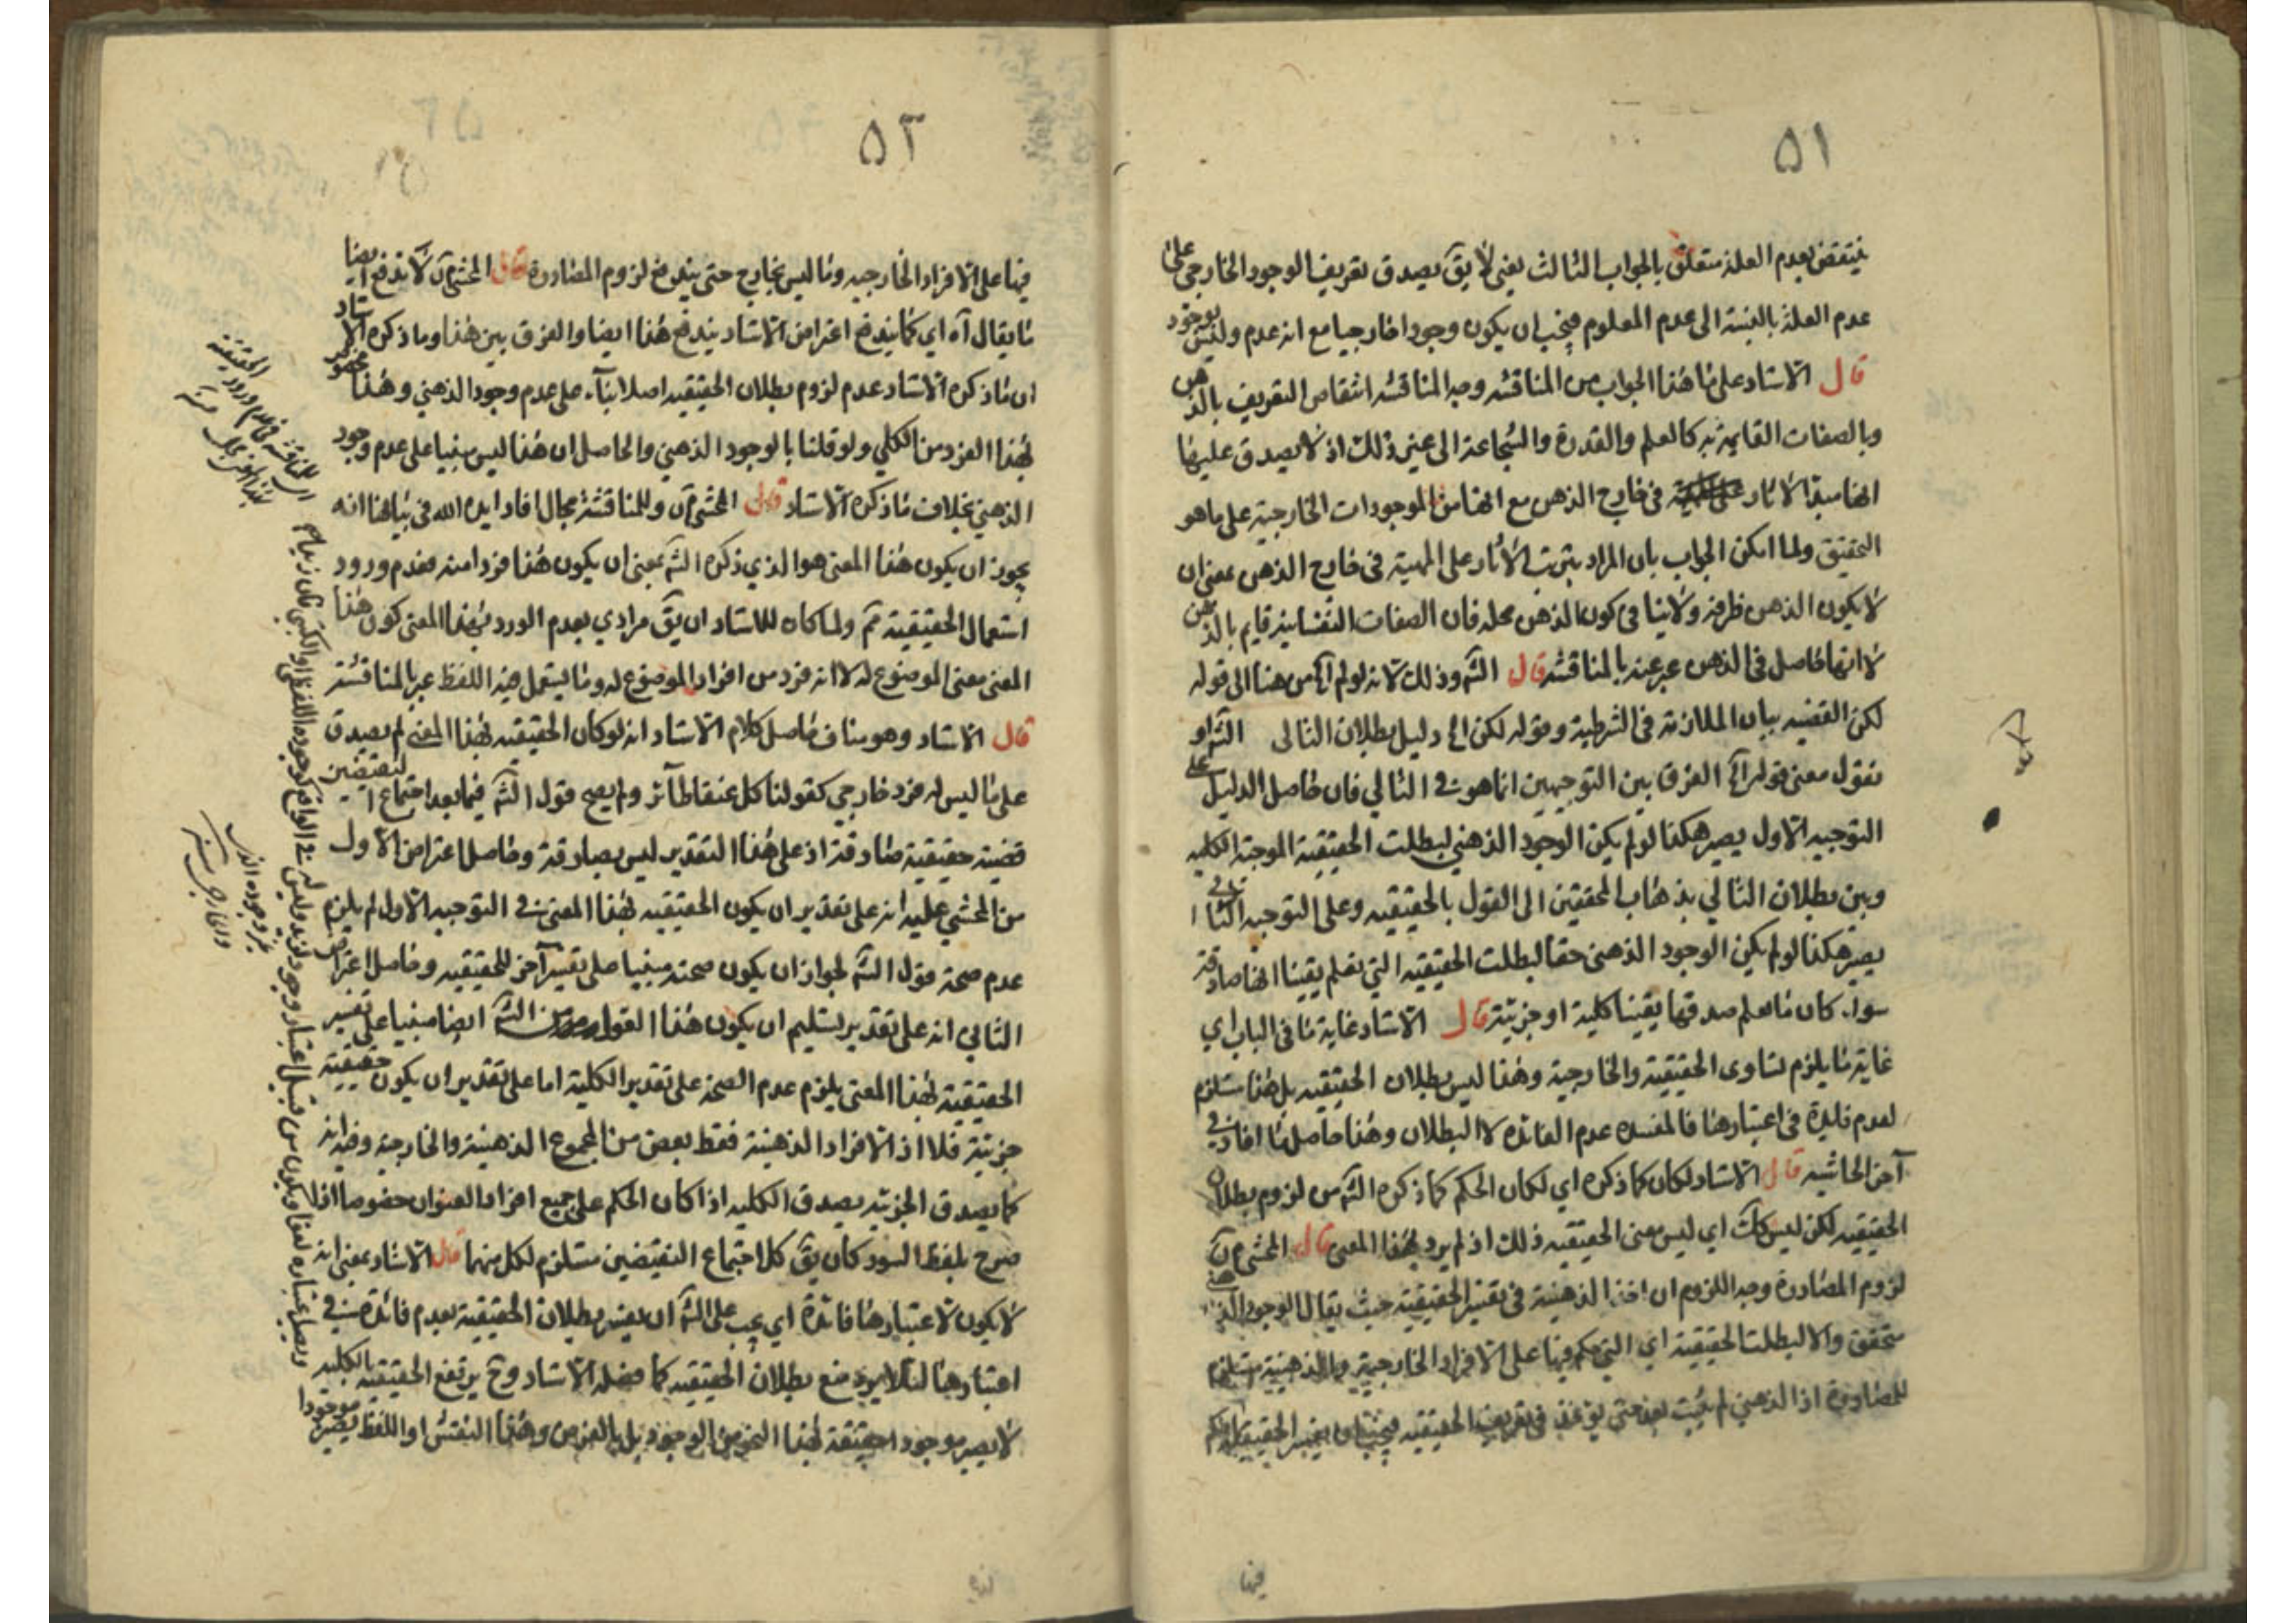 ٥١
ينتقض بعدم العلة متعلق بالجواب الثالث يعني لا يق يصدق تعريف الوجود الخارجي على
عدم العلة بالنسبة الى عدم المعلوم فيجب ان يكون وجودا خارجيا مع انه عدم وليس بوجود
قال الاستاد على ما هذا الجواب من المناقشه وجه المناقشه انتقاض التعريف بالذهن
وبالصفات القايمة به كالعلم والقدرة والشجاعة الى غير ذلك اذ لا يصدق عليها
انها مبدأ الاثار في خارج الذهن مع انها من الموجودات الخارجية على ما هو
التحقيق ولما امكن الجواب بان المراد بترتب الاثار على المهية في خارج الذهن بمعنى ان
لا يكون الذهن ظرفه ولا ينافي كون الذهن محله فان الصفات النفسانية قايم بالذهن
لا انها حاصل في الذهن عبر عنه بالمناقشه قال الشم وذلك لانه لو لم اه من هنا الى قوله
لكن القضيه بيان الملازمة في الشرطية وقوله لكن اه دليل بطلان التالي الشم او
نقول معنى قوله اه الفرق بين التوجيهين انما هو في التالي فان حاصل الدليل على
التوجيه الاول يصير هكذا لو لم يكن الوجود الذهني لبطلت الحقيقية الموجبة الكليه
وبين بطلان التالي بذهاب المحققين الى القول بالحقيقيه وعلى التوجيه الثاني
يصير هكذا لو لم يكن الوجود الذهني حقا لبطلت الحقيقيه التي نعلم يقينا انها صادقة
سواء كان ما نعلم صدقها يقينا كلية او جزئية قال الاستاد غاية ما في الباب اي
غاية ما يلزم تساوى الحقيقية والخارجية وهذا ليس بطلان الحقيقيه بل هذا مستلزم
لعدم فايدة في اعتبارها فالمفسده عدم الفائده لا البطلان وهذا حاصل ما افاد في
آخر الحاشيه قال الاستاد لكان كما ذكره اي لكان الحكم كما ذكره الشم من لزوم بطلان
الحقيقيه لكن ليس كك اي ليس معنى الحقيقيه ذلك اذ لم يرد بهذا المعنى قال المحشي
لزوم المصادرة وجه اللزوم ان اخذ الذهنية في تفسير الحقيقية حيث يقال الوجود الذهني
متحقق والا لبطلت الحقيقية اي التي حكم فيها على الافراد الخارجية والذهنية مستلزم
للمصادرة اذ الذهني لم يثبت بعد حتى يؤخذ في تعريف الحقيقيه
فيها
٥٢
فيها على الافراد الخارجيه وما ليس بخارج حتى يندفع لزوم المصادرة قال المحشي لا تدفع ايضا
ما يقال آه اي كما يندفع اعتراض الاستاد يندفع هذا ايضا والفرق بين هذا وما ذكره الاستاد
ان ما ذكره الاستاد عدم لزوم بطلان الحقيقيه اصلا بناء على عدم وجود الذهني وهذا مخصوص
بهذا الفرد من الكلي ولو قلنا بالوجود الذهني والحاصل ان هذا ليس مبنيا على عدم وجود
الذهني بخلاف ما ذكره الاستاد قال المحشي وللمناقشة مجال افاد ايده الله في بيانها انه
يجوز ان يكون هذا المعنى هو الذي ذكره الشم بمعنى ان يكون هذا فردا منه فعدم ورود
استعمال الحقيقية ثم ولما كان للاستاد ان يق مرادي بعدم الورد بهذا المعنى كون هذا
المعنى معنى الموضوع له لا انه فرد من افراد الموضوع له وما يستعمل فيه اللفظ عبر بالمناقشة
قال الاستاد وهو مناف حاصل كلام الاستاد انه لو كان الحقيقيه بهذا المعنى لم يصدق
على ما ليس له فرد خارجي كقولنا كل عنقا طائر ولم يصح قول الشم فيما بعد اجتماع النقيضين
قضية حقيقية صادقة اذ على هذا التقدير ليس بصادقة وحاصل اعتراض الاول
من المحشي عليه انه على تقدير ان يكون الحقيقيه بهذا المعنى في التوجيه الاول لم يلزم
عدم صحة قول الشم لجواز ان يكون صحته مبنيا على تفسير آخر للحقيقيه وحاصل اعتراض
الثاني انه على تقدير تسليم ان يكون هذا القول من الشم ايضا مبنيا على تفسير
الحقيقية بهذا المعنى يلزم عدم الصحة على تقدير الكلية اما على تقدير ان يكون حقيقية
جزئية فلا اذ الافراد الذهنية فقط بعض من المجموع الذهنية والخارجية وفيه انه
كما يصدق الجزئيه يصدق الكليه اذا كان الحكم على جميع افراد العنوان خصوصا اذا
صرح بلفظ السور كان يق كل اجتماع النقيضين مستلزم لكل منهما قال الاستاد بمعنى انه
لا يكون لاعتبارها فائدة اي يجب على الشم ان يفسر بطلان الحقيقية بعدم فائدة في
اعتبارها لئلا يرد منع بطلان الحقيقيه كما فصله الاستاد وح يرتفع الحقيقيه بالكليه
لا يصير موجودا حقيقة لهذا النحو من الوجود بل بالعرض وهذا النقش او اللفظ يصير موجودا